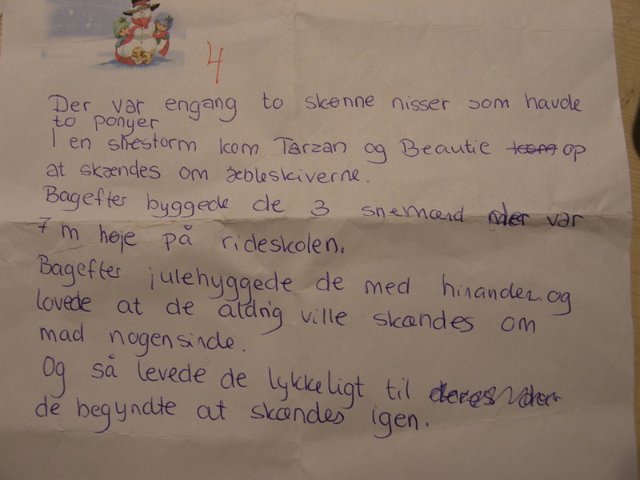 4
Der var engang to skønne nisser som havde
to ponyer
I en snestorm kom Tarzan og Beautie op
at skændes om æbleskiverne.
Bagefter byggede de 3 snemænd der var
7 m høje på rideskolen.
Bagefter julehyggede de med hinanden og
lovede at de aldrig ville skændes om
mad nogensinde.
Og så levede de lykkeligt til
de begyndte at skændes igen.